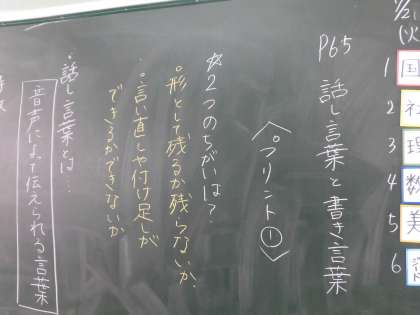 1 国
2 社
3 理
4 数
5 美
6
P65 話し言葉と書き言葉
〈プリント①〉
☆2つのちがいは?
・形として残るか残らないか、
・言い直しや付け足しが
できるかできないか
・話し言葉とは…
音声によって伝えられる言葉